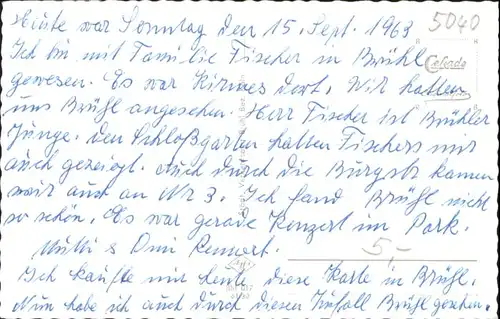 Heute war Sonntag den 15. Sept. 1963
5040
Ich bin mit Familie Fischer in Brühl
gewesen. Es war Kirmes dort. Wir hatten
uns Brühl angesehen. Herr Fischer ist Brühler
Junge. Den Schloßgarten hatten Fischers mir
auch gezeigt. Auch durch die Burgstr. kamen
wir auch an Nr 3. Ich fand Brühl nicht
so schön. Es war gerade Konzert im Park.
Mutti & Omi
5,-
Ich kaufte mir heute diese Karte in Brühl.
Nun habe ich auch durch diesen Zufall Brühl gesehen.